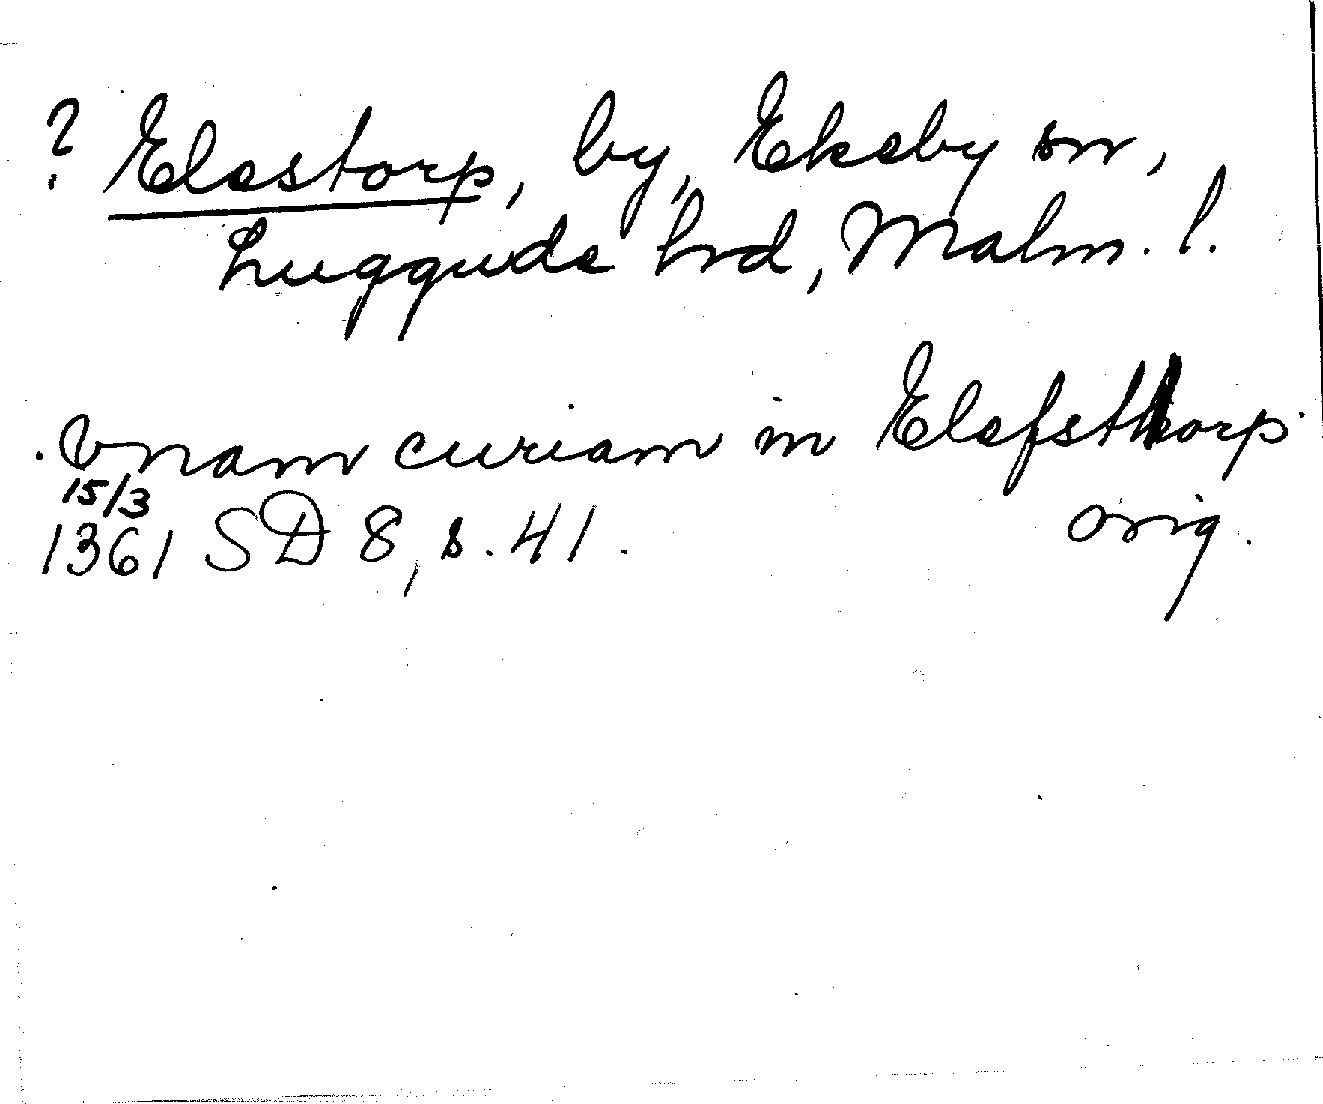 ? Elestorp, by, Ekeby sn,
Luggude hrd, Malm. l.
Vnam curiam in Elefsthorp
15/3
1361 SD 8, s. 41. orig.